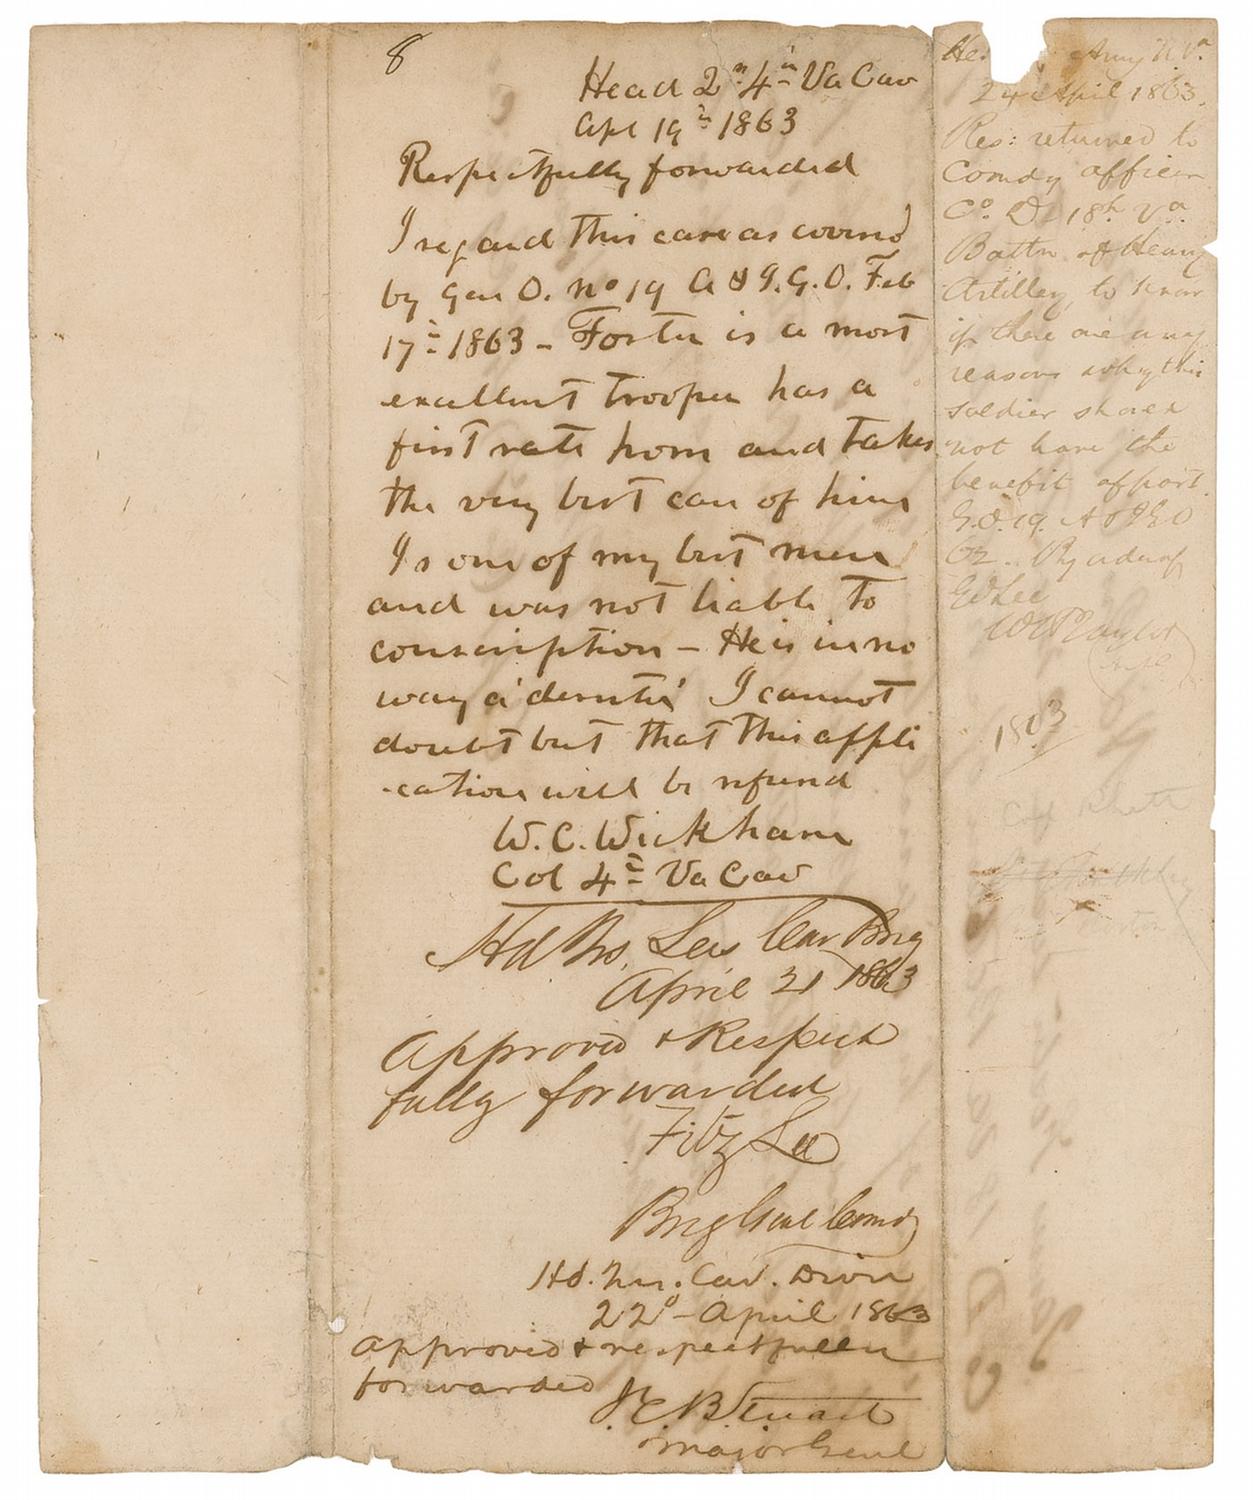 8
Head 2rs 4th Va Cav
Apl 19th 1863
Respectfully forwarded
I regard this case as covered
by Gen O. no 19 A & I.G.O. Feb
17th 1863 - Foster is a most
excellent trooper has a
first rate horse and takes
the very best care of him
Is one of my best men
and was not liable to
conscription - He is in no
way a 'deserter' I cannot
doubt but that this appli
-cation will be refused
W. C. Wickham
Col 4th Va Cav
Hd Qrs. Lees Cav Brig
April 21 1863
Approved & Respect
fully forwarded
Fitz Lee
Brig Genl Comdg
Hd. Qrs. Cav. Divn
22d - April 1863
Approved & respectfully
forwarded
J E B Stuart
Major Genl
Army N. Va.
24 April 1863.
Res: returned to
Comdg officer
Co. D. 18th Va.
Battn of Heavy
Artillery, to know
if there are any
reasons why this
soldier should
not have the
benefit of part.
G.O. 19. A & I G O
By order of
Lee
W Taylor
1863